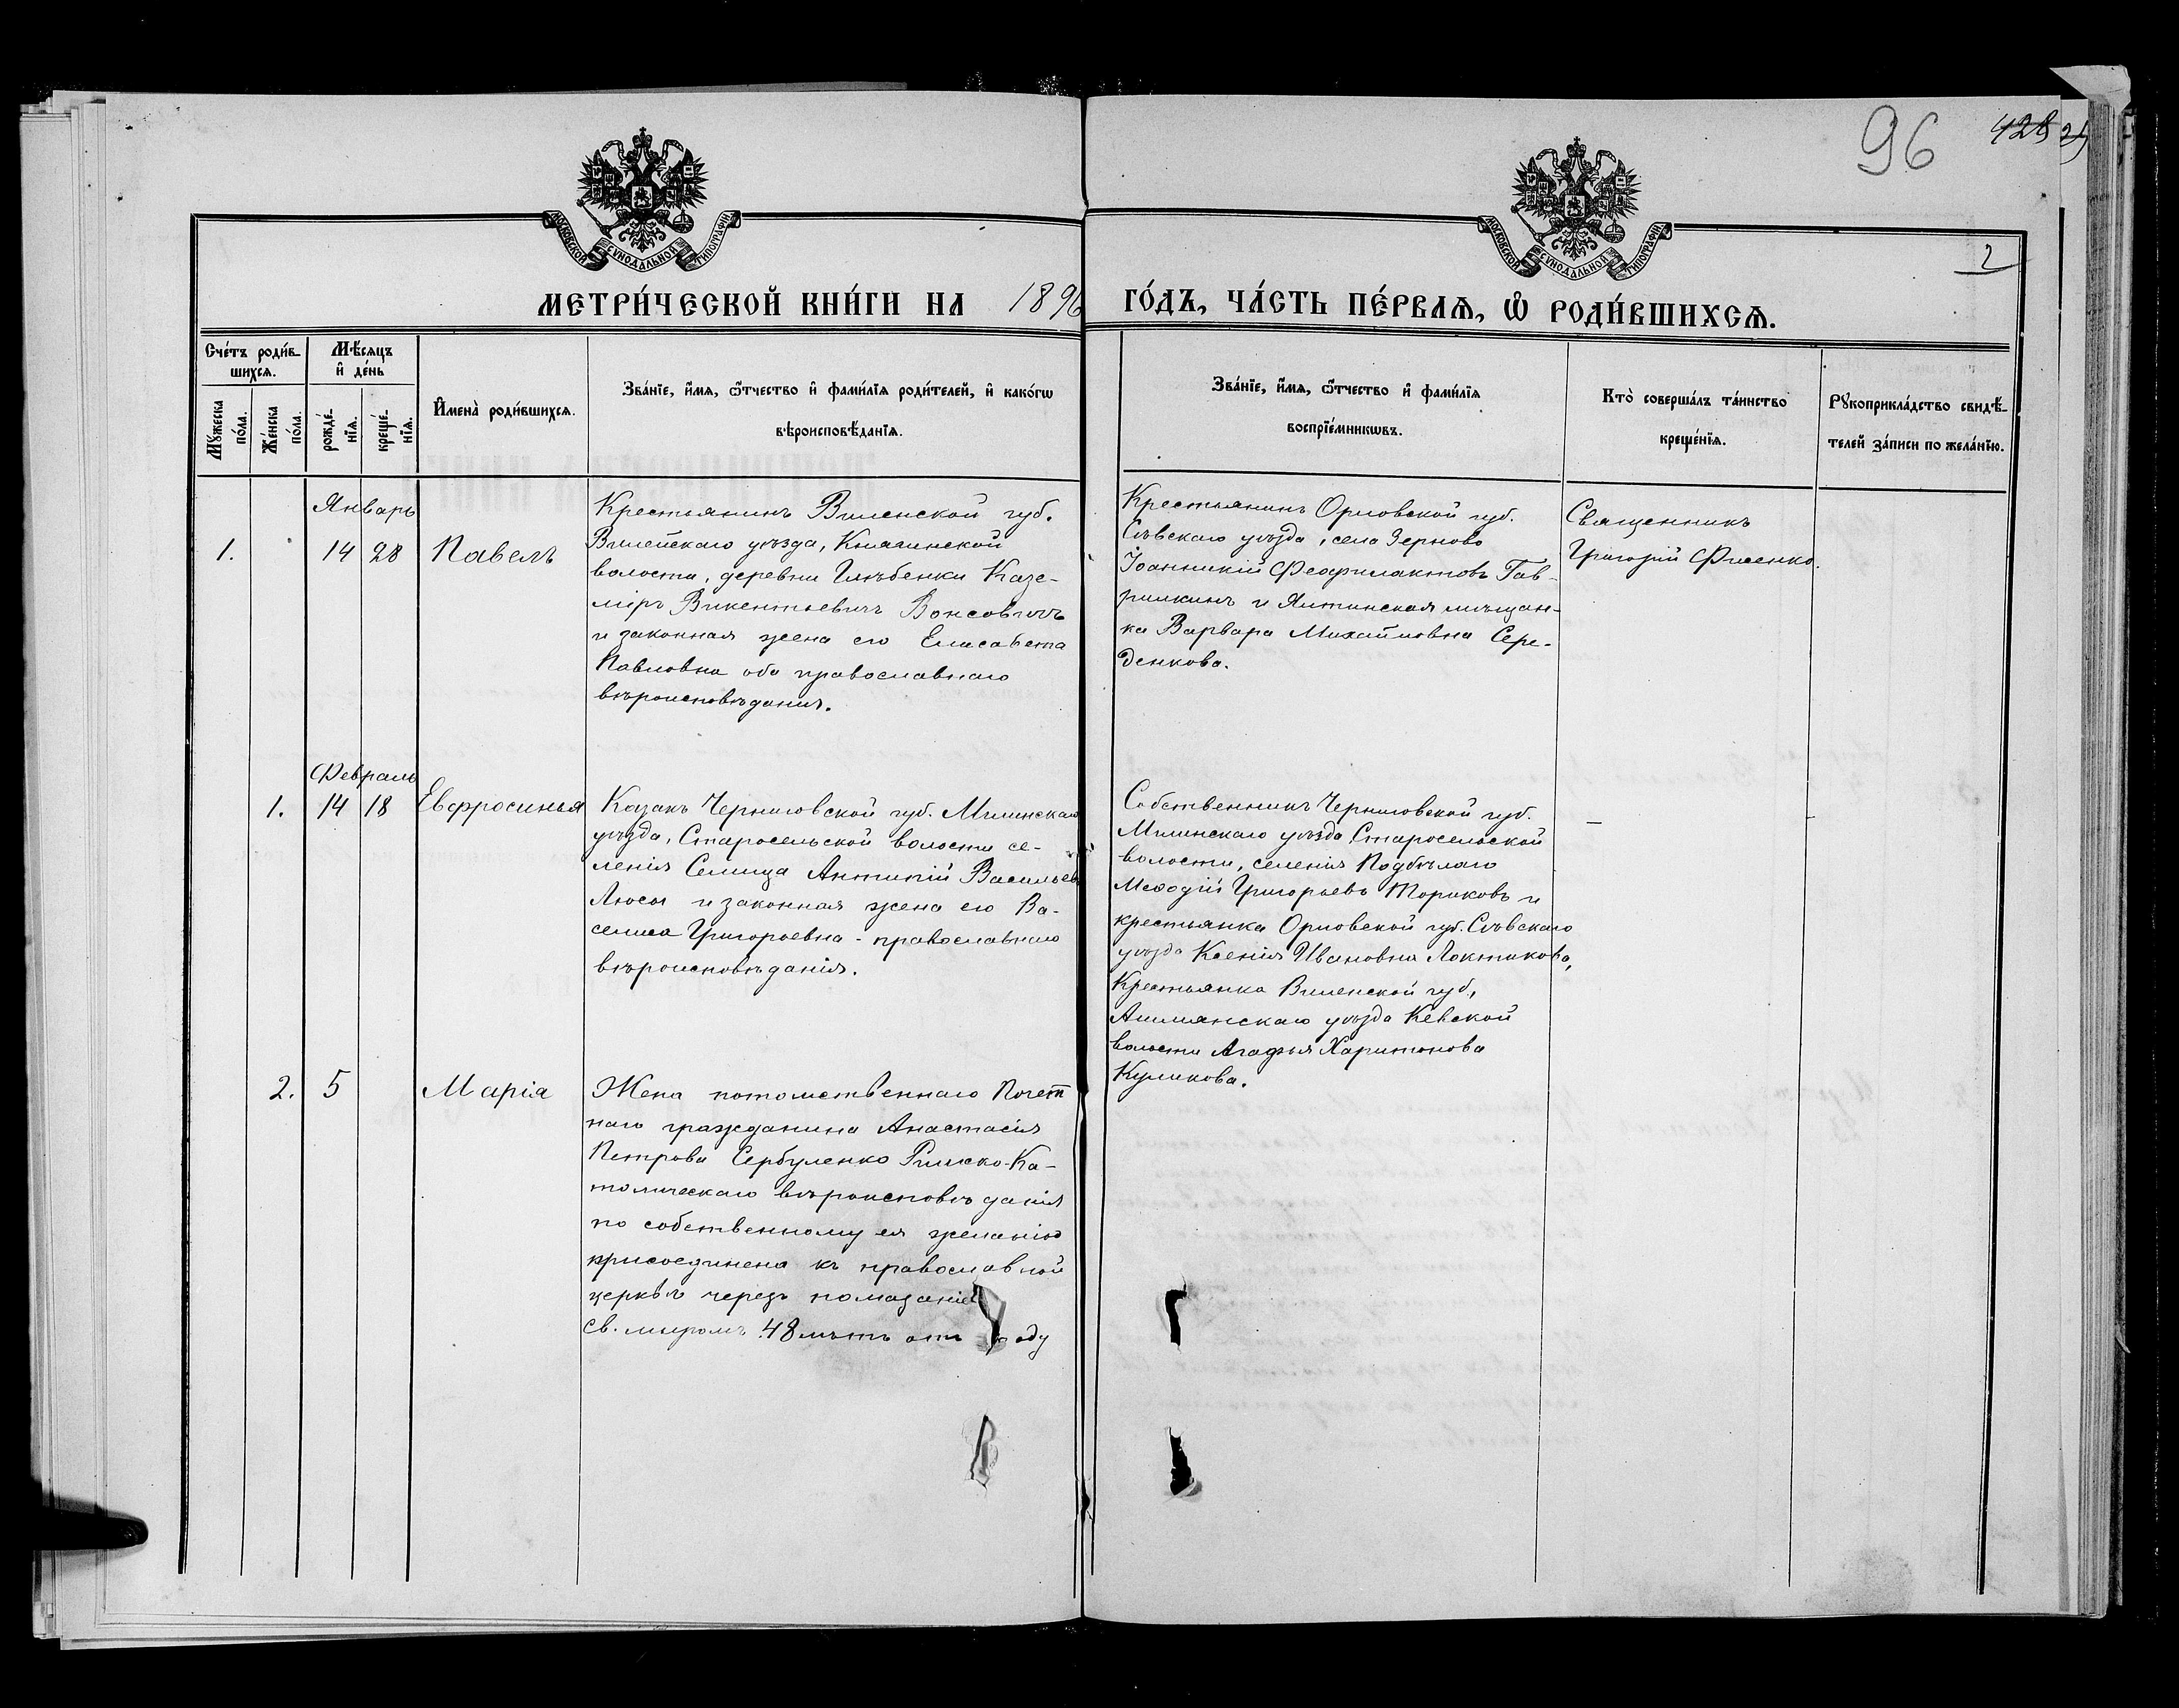 96
428
2
МОСКОВСКОЙ СѴНОДАЛЬНОЙ ТИПОГРАФІИ
МОСКОВСКОЙ СѴНОДАЛЬНОЙ ТИПОГРАФІИ
МЕТРИ́ЧЕСКОЙ КНИ́ГИ НА 1896 ГО́ДЪ, ЧА́СТЬ ПЕ́РВАѦ, Ѡ҆ РОДИ́ВШИХСѦ.
Сче́тъ роди́в-
шихсѧ.
Мѣ́сяцъ
и҆ де́нь
Мꙋ́жеска
по́ла.
Же́нска
по́ла.
рожде́-
нїѧ.
креще́-
нїѧ.
И҆мена̀ роди́вшихсѧ.
Зва́нїе, и҆́мѧ, ѻ҆́тчество и҆ фами́лїѧ роди́телей, и҆ како́гѡ
вѣроисповѣ́данїѧ.
Зва́нїе, и҆́мѧ, ѻ҆́тчество и҆ фами́лїѧ
воспрїе́мникѡвъ.
Кто̀ соверша́лъ та́инство
креще́нїѧ.
Рꙋкоприкла́дство свидѣ́-
телей за́писи по жела́нїю.
Январь
1. 14 28 Павелъ
Крестьянинъ Виленской губ.
Вилейскаго уѣзда, Княгинской
волости, деревни Глѣбенки Казе-
міръ Викентьевичъ Вонсовичъ
и законная жена его Елисавета
Павловна оба православнаго
вѣроисповѣданія.
Крестьянинъ Орловской губ.
Сѣвскаго уѣзда, села Зерново
Іоанникій Феофилактовъ Гав-
рилкинъ и Ялтинская мѣщан-
ка Варвара Михайловна Сере-
денкова.
Священникъ
Григорій Фисенко.
Февраль
1. 14 18 Евфросинья
Казакъ Черниговской губ. Мглинскаго
уѣзда, Старосельской волости се-
ленія Селища Антипій Васильев
Люсы и законная жена его Ва-
силиса Григорьевна - православнаго
вѣроисповѣданія.
Собственникъ Черниговской губ.
Мглинскаго уѣзда Старосельской
волости, селенія Подбѣлаго
Меѳодій Григорьевъ Ториковъ и
крестьянка Орловской губ. Сѣвскаго
уѣзда Ксенія Ивановна Локтикова,
Крестьянка Виленской губ.,
Ашмянскаго уѣзда Кевской
волости Агафья Харитонова
Куликова.
2. 5 Марія
Жена потомственнаго Почет
наго гражданина Анастасія
Петрова Сербуленко Римско-Ка-
толическаго вѣроисповѣданія
по собственному ея желанію
присоединена къ православной
церквѣ черезъ помазаніе
Св. миромъ 48 лѣтъ отъ роду